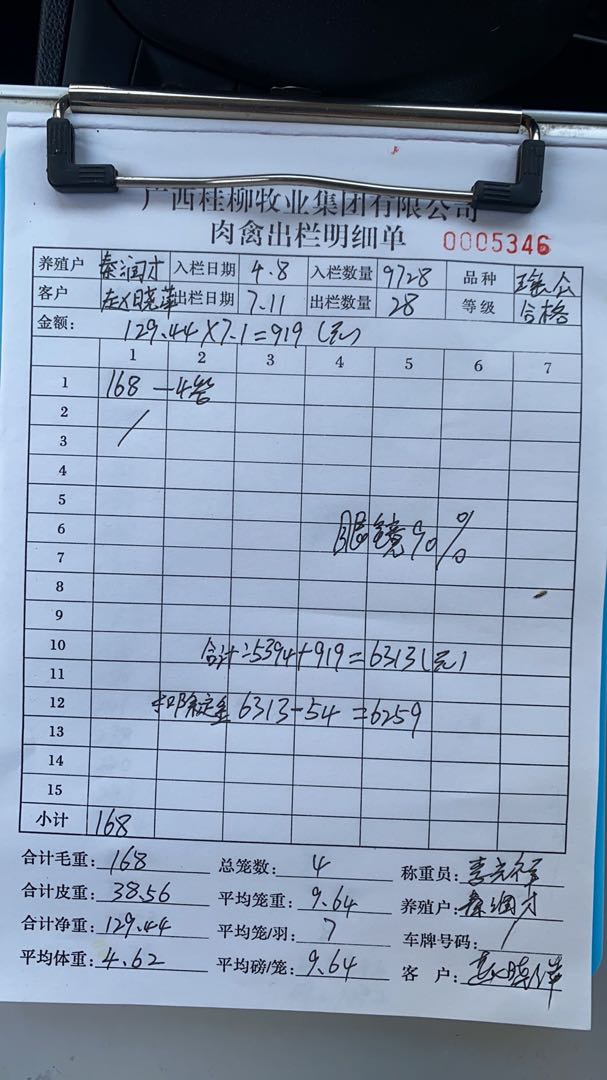 广西桂柳牧业集团有限公司
肉禽出栏明细单 0005346
养殖户 秦润才 入栏日期 4.8 入栏数量 9728 品种
客户 赵晓萍 出栏日期 7.11 出栏数量 28 等级 合格
金额: 129.44×7.1=919(元)
1 2 3 4 5 6 7
1 168 —4笼
2
3
4
5
6 眼镜90%
7
8
9
10 合计:5394+919=6313(元)
11
12 扣除定金 6313-54=6259
13
14
15
小计 168
合计毛重: 168 总笼数: 4 称重员:
合计皮重: 38.56 平均笼重: 9.64 养殖户: 秦润才
合计净重: 129.44 平均笼/羽: 7 车牌号码: /
平均体重: 4.62 平均磅/笼: 9.64 客 户: 赵晓萍